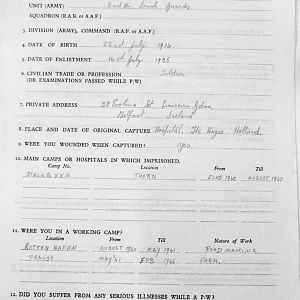 UNIT (ARMY) Irish Guards
SQUADRON (R.A.F. or A.A.F.)
3. DIVISION (ARMY), COMMAND (R.A.F. or A.A.F.)
4. DATE OF BIRTH 22nd July 1914.
5. DATE OF ENLISTMENT July 1935
6. CIVILIAN TRADE OR PROFESSION Soldier
(OR EXAMINATIONS PASSED WHILE P/W)
7. PRIVATE ADDRESS St.
Belfast, Ireland
8. PLACE AND DATE OF ORIGINAL CAPTURE Hospital, The Hague, Holland.
9. WERE YOU WOUNDED WHEN CAPTURED? yes.
10. MAIN CAMPS OR HOSPITALS IN WHICH IMPRISONED.
Location From Till
STALAG XXA THORN JUNE 1940 AUGUST 1940
11. WERE YOU IN A WORKING CAMP?
Location From Till Nature of Work
AUGUST 1940 MAY 1941 ROAD MAKING
PRAUST MAY '41 FEB 1945 FARM.
12. DID YOU SUFFER FROM ANY SERIOUS ILLNESSES WHILE A P/W?